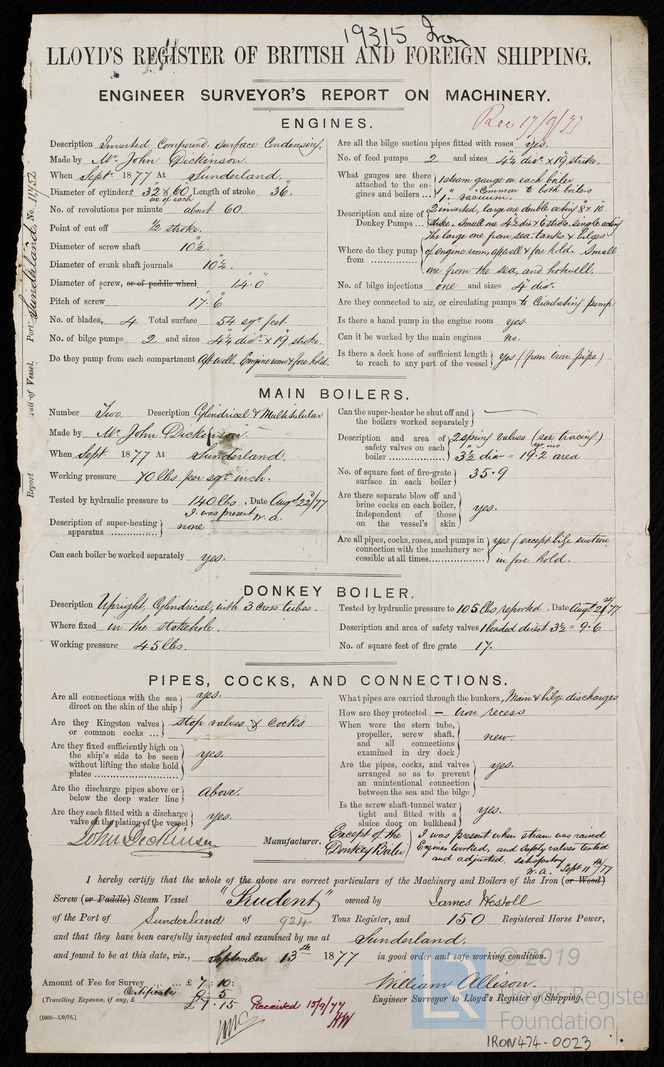 19315 Iron
LLOYD'S REGISTER OF BRITISH AND FOREIGN SHIPPING.
ENGINEER SURVEYOR'S REPORT ON MACHINERY.
Rec 17/9/77
Port Sunderland. No. 11452
Report
ENGINES.
Description Inverted Compound, Surface Condensing.
Made by Mr. John Dickinson.
When Sept. 1877 At Sunderland.
Diameter of cylinders 32" & 60" Length of stroke 36".
No. of revolutions per minute about 60
Point of cut off ½ stroke.
Diameter of screw shaft 10½".
Diameter of crank shaft journals 10½".
Diameter of screw, or of paddle wheel 14'.0"
Pitch of screw 17'.6"
No. of blades, 4 Total surface 54 sqr. feet.
No. of bilge pumps 2 and sizes 4¼" diar. × 19" stroke.
Do they pump from each compartment Aft well, Engine room & fore hold.
Are all the bilge suction pipes fitted with roses yes.
No. of feed pumps 2 and sizes 4¼" diar. × 19" stroke.
What gauges are there attached to the engines and boilers ... 1 steam gauge on each boiler
1 " Common to both boilers
1 vacuum.
Description and size of Donkey Pumps 2 inverted, large one double acting 8" × 10"
stroke. Small one 4½" dia & 6" stroke. Single acting
Where do they pump from The large one from sea, tanks & bilges
of engine room, aft well & fore hold. Small
one from the sea, and hotwell.
No. of bilge injections one and sizes 4" diar.
Are they connected to air, or circulating pumps to Circulating pump
Is there a hand pump in the engine room yes.
Can it be worked by the main engines no.
Is there a deck hose of sufficient length to reach to any part of the vessel yes
MAIN BOILERS.
Number Two. Description Cylindrical & Multitubular
Made by Mr. John Dickinson.
When Sept. 1877 At Sunderland.
Working pressure 70 lbs per sqr. inch.
Tested by hydraulic pressure to 140 lbs. Date Augt. 22/77
I was present W. A.
Description of super-heating apparatus none
Can each boiler be worked separately yes.
Can the super-heater be shut off and the boilers worked separately —
Description and area of safety valves on each boiler 2 spring valves (see tracing)
3½" diar = 19.2 area
No. of square feet of fire-grate surface in each boiler 35.9
Are there separate blow off and brine cocks on each boiler, independent of those on the vessel's skin yes.
Are all pipes, cocks, roses, and pumps in connection with the machinery accessible at all times yes (except bilge suction
in fore hold.
DONKEY BOILER.
Description Upright, Cylindrical, with 3 cross tubes.
Where fixed in the stokehole.
Working pressure 45 lbs.
Tested by hydraulic pressure to 105 lbs reported. Date Augt
Description and area of safety valves 1 loaded direct 3½" = 9.6
No. of square feet of fire grate 17.
PIPES, COCKS, AND CONNECTIONS.
Are all connections with the sea direct on the skin of the ship yes.
Are they Kingston valves or common cocks ... stop valves & Cocks
Are they fixed sufficiently high on the ship's side to be seen without lifting the stoke hold plates yes.
Are the discharge pipes above or below the deep water line above.
Are they each fitted with a discharge valve on the plating of the vessel yes.
What pipes are carried through the bunkers, Main & bilge discharges
How are they protected – Iron recess
When were the stern tube, propeller, screw shaft, and all connections examined in dry dock new.
Are the pipes, cocks, and valves arranged so as to prevent an unintentional connection between the sea and the bilge yes.
Is the screw shaft-tunnel water tight and fitted with a sluice door on bulkhead yes.
John Dickinson Manufacturer.
Except of the
Donkey Boiler
I was present when steam was raised
Engines worked, and safety valves tested
and adjusted, satisfactory
W. A. Sept 11th/77
I hereby certify that the whole of the above are correct particulars of the Machinery and Boilers of the Iron (or Wood)
Screw (or Paddle) Steam Vessel "Prudent" owned by James Westoll
of the Port of Sunderland of 924 Tons Register, and 150 Registered Horse Power,
and that they have been carefully inspected and examined by me at Sunderland.
and found to be at this date, viz., September 13th 1877 in good order and safe working condition.
Amount of Fee for Survey ... £ 7 : 10 :
Certificate 5
(Travelling Expenses, if any, £
£7.15
Received 15/9/77
HW
William Allison.
Engineer Surveyor to Lloyd's Register of Shipping.
[1000—1/9/76.]
© 2019
LR
Lloyd's Register
Foundation
IRON474-0023